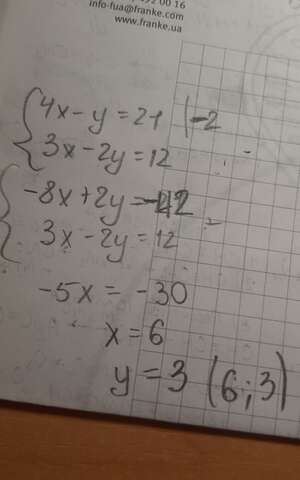 info-fua@franke.com
www.franke.ua
4x-y=21 |-2
3x-2y=12
-8x+2y=-42
3x-2y=12
-5x=-30
x=6
y=3 (6;3)